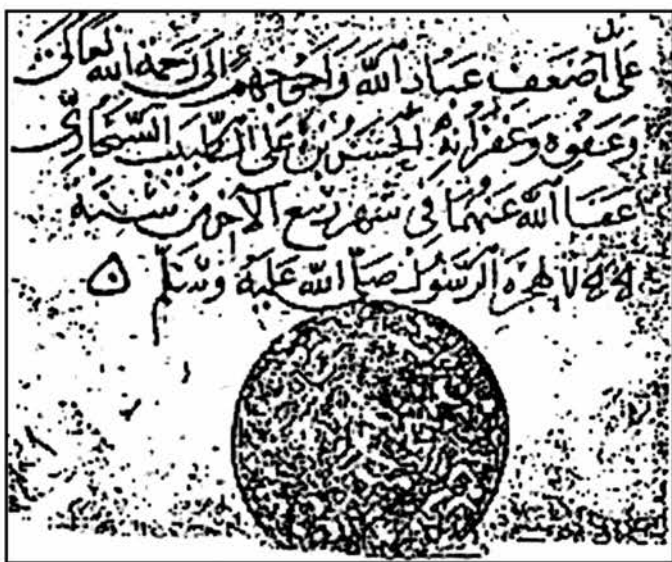 على أضعف عباد الله وأحوجهم إلى رحمة الله تعالى
وعفوه وغفرانه الحسن بن على الطبيب
عفا الله عنهما في شهر ربيع الآخر من سنة
لهجرة الرسول صلى الله عليه وسلم